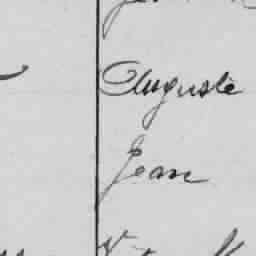 Auguste
Jean